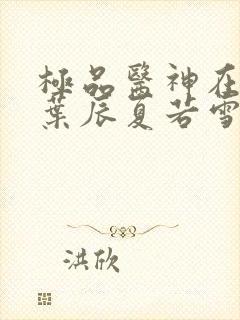 極品醫神在
葉辰夏若雪
洪欣